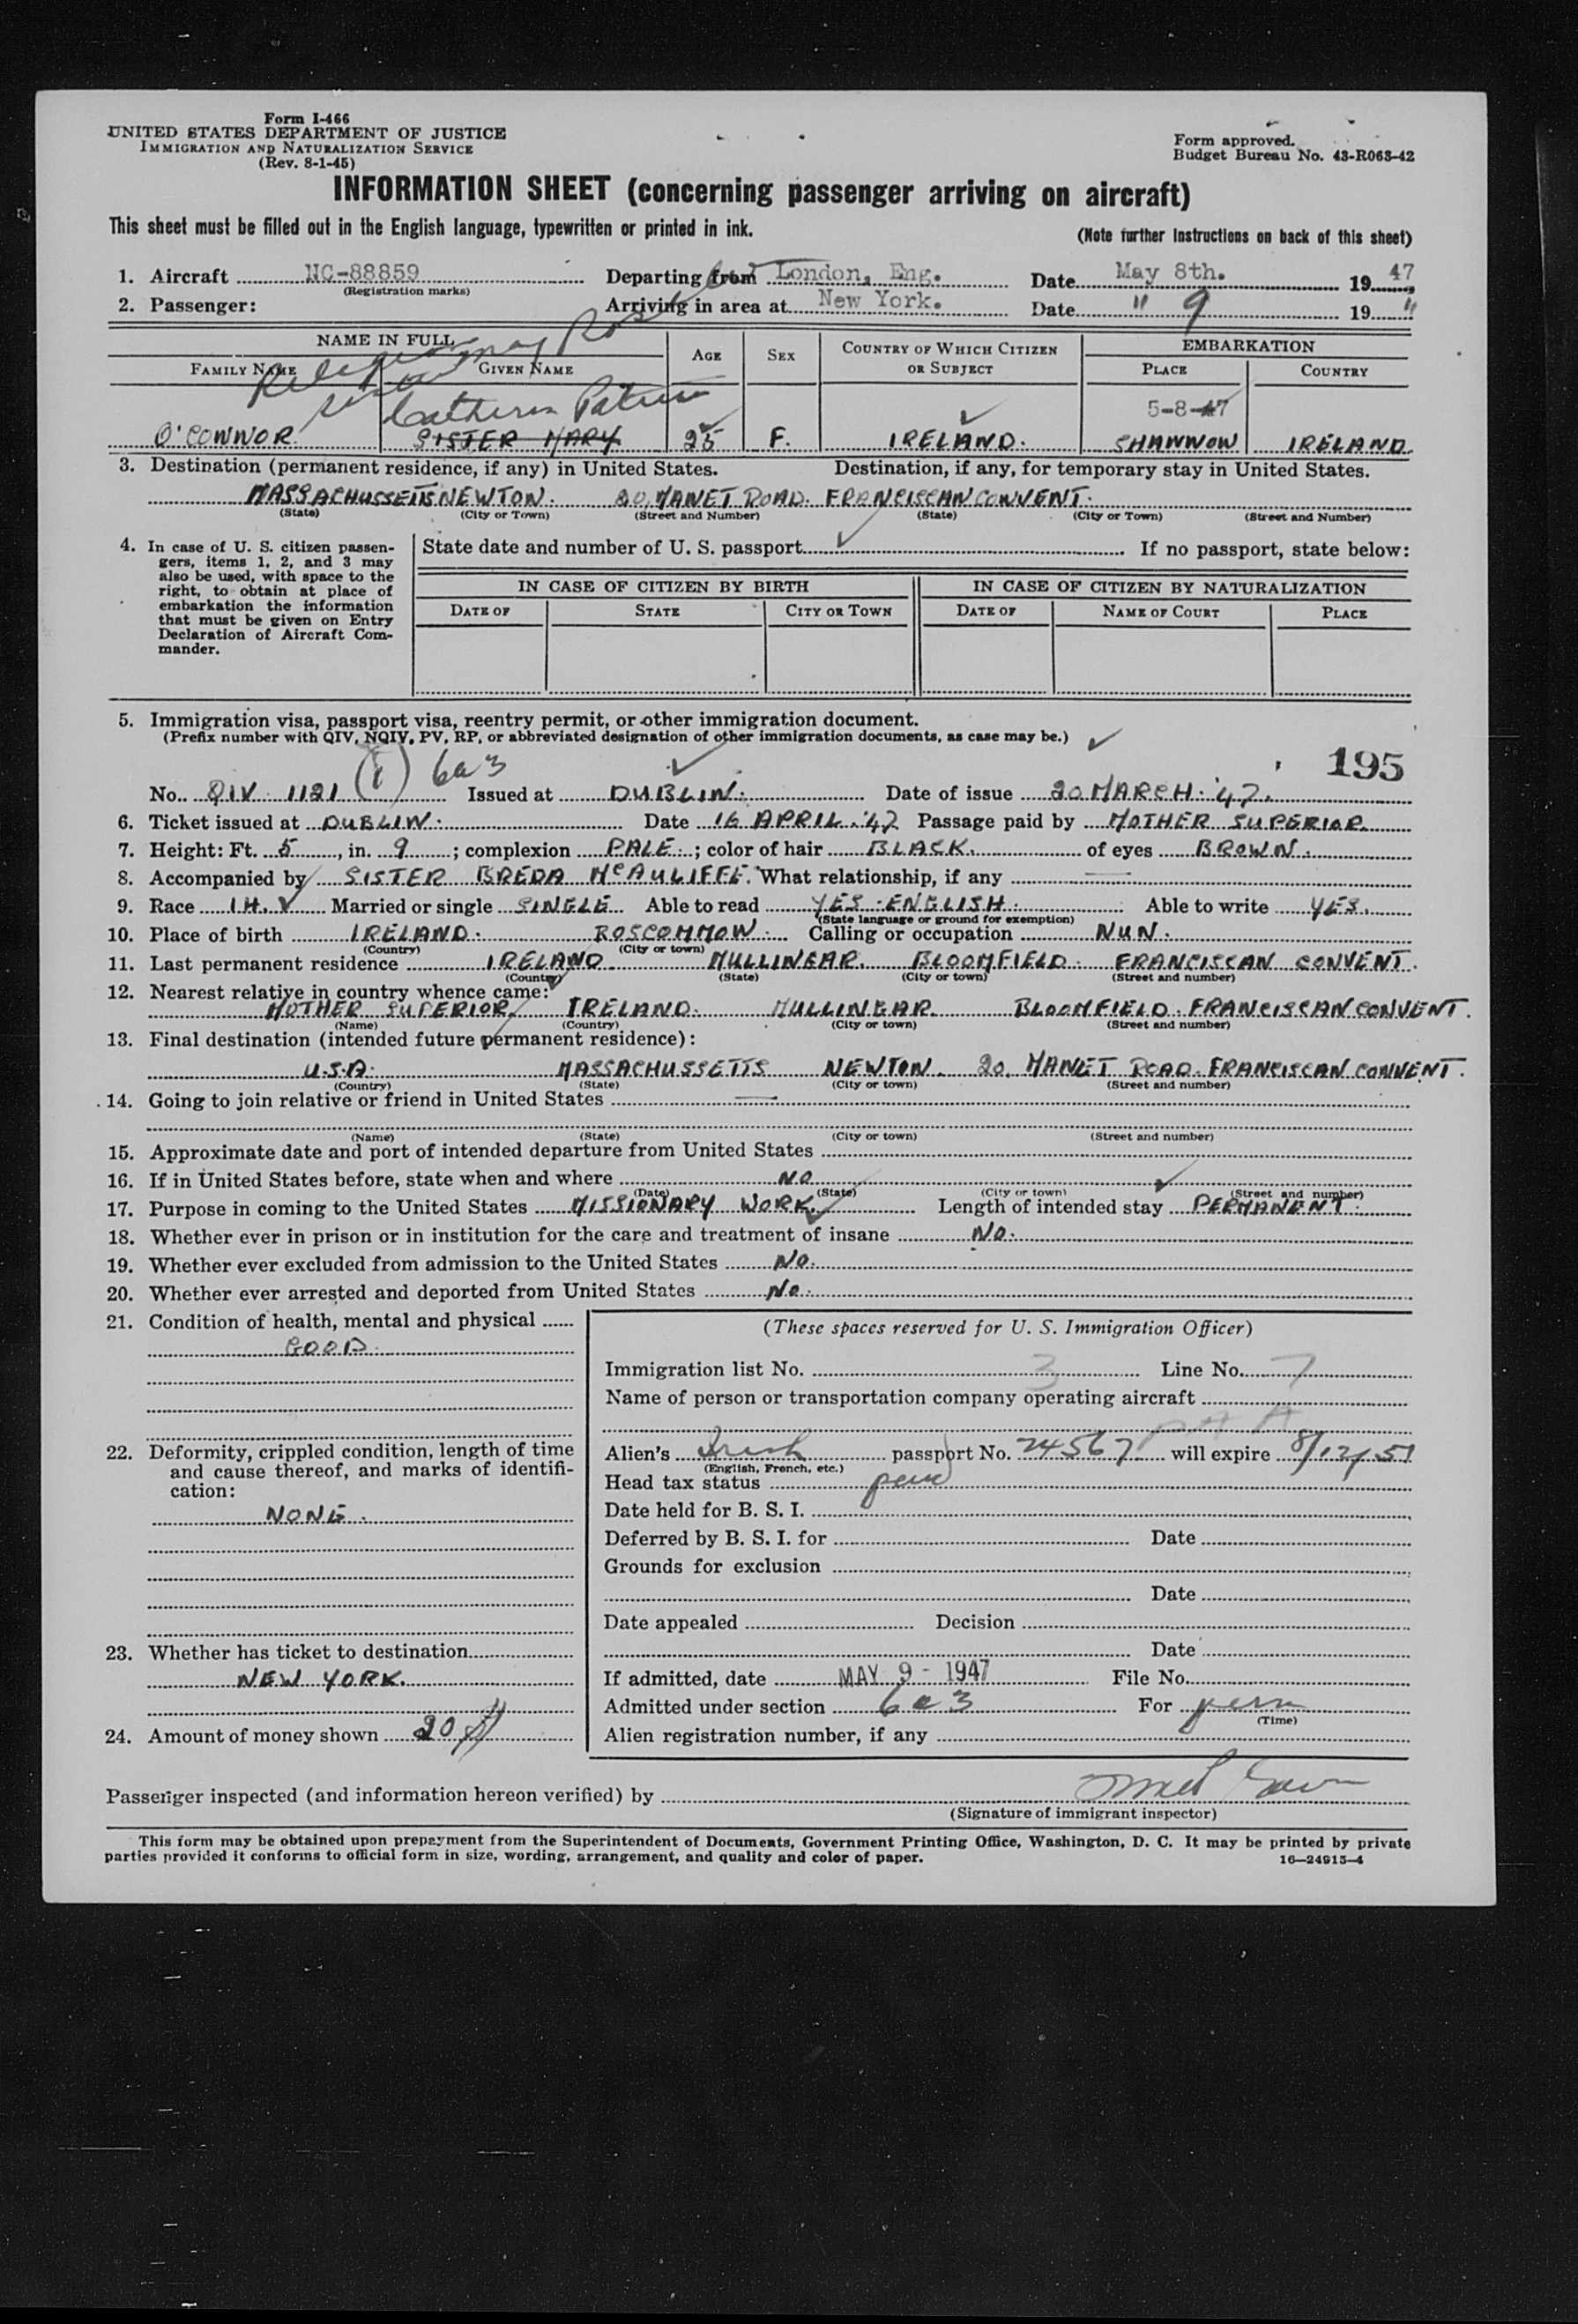 Form I-466
UNITED STATES DEPARTMENT OF JUSTICE
IMMIGRATION AND NATURALIZATION SERVICE
(Rev. 8-1-45)
Form approved.
Budget Bureau No. 43-R063-42
INFORMATION SHEET (concerning passenger arriving on aircraft)
This sheet must be filled out in the English language, typewritten or printed in ink.
(Note further Instructions on back of this sheet)
1. Aircraft NC-88859 Departing from London, Eng. Date May 8th. 1947
(Registration marks)
2. Passenger: Arriving in area at New York. Date " 9 19 "
NAME IN FULL AGE SEX COUNTRY OF WHICH CITIZEN OR SUBJECT EMBARKATION
FAMILY NAME GIVEN NAME PLACE COUNTRY
5-8-47
O'CONNOR. Catherine SISTER MARY 25 F. IRELAND. SHANNON IRELAND
3. Destination (permanent residence, if any) in United States. Destination, if any, for temporary stay in United States.
MASSACHUSSETTS NEWTON. 20, MANET ROAD. FRANCISCAN CONVENT.
(State) (City or Town) (Street and Number) (State) (City or Town) (Street and Number)
4. In case of U. S. citizen passengers, items 1, 2, and 3 may
also be used, with space to the
right, to obtain at place of
embarkation the information
that must be given on Entry
Declaration of Aircraft Commander.
State date and number of U. S. passport If no passport, state below:
IN CASE OF CITIZEN BY BIRTH IN CASE OF CITIZEN BY NATURALIZATION
DATE OF STATE CITY OR TOWN DATE OF NAME OF COURT PLACE
5. Immigration visa, passport visa, reentry permit, or other immigration document.
(Prefix number with QIV, NQIV, PV, RP, or abbreviated designation of other immigration documents, as case may be.)
195
No. QIV 1121 (1) 6a3 Issued at DUBLIN. Date of issue 20 MARCH. '47.
6. Ticket issued at DUBLIN. Date 16 APRIL. '47 Passage paid by MOTHER SUPERIOR.
7. Height: Ft. 5, in. 9; complexion PALE.; color of hair BLACK. of eyes BROWN.
8. Accompanied by SISTER BREDA McAULIFFE. What relationship, if any —
9. Race IH. Married or single SINGLE Able to read YES. ENGLISH. Able to write YES.
(State language or ground for exemption)
10. Place of birth IRELAND. ROSCOMMON. Calling or occupation NUN.
(Country) (City or town)
11. Last permanent residence IRELAND MULLINGAR. BLOOMFIELD. FRANCISCAN CONVENT.
(Country) (State) (City or town) (Street and number)
12. Nearest relative in country whence came:
MOTHER SUPERIOR, IRELAND. MULLINGAR. BLOOMFIELD. FRANCISCAN CONVENT.
(Name) (Country) (City or town) (Street and number)
13. Final destination (intended future permanent residence):
U.S.A. MASSACHUSSETTS NEWTON. 20, MANET ROAD. FRANCISCAN CONVENT.
(Country) (State) (City or town) (Street and number)
14. Going to join relative or friend in United States —
(Name) (State) (City or town) (Street and number)
15. Approximate date and port of intended departure from United States
16. If in United States before, state when and where NO
(Date) (State) (City or town) (Street and number)
17. Purpose in coming to the United States MISSIONARY WORK. Length of intended stay PERMANENT.
18. Whether ever in prison or in institution for the care and treatment of insane NO.
19. Whether ever excluded from admission to the United States NO.
20. Whether ever arrested and deported from United States NO.
21. Condition of health, mental and physical
GOOD.
22. Deformity, crippled condition, length of time
and cause thereof, and marks of identification:
NONE.
23. Whether has ticket to destination
NEW YORK.
24. Amount of money shown 20
(These spaces reserved for U. S. Immigration Officer)
Immigration list No. 3 Line No. 7
Name of person or transportation company operating aircraft
PAA
Alien's Irish passport No. 24567 will expire 8/12/51
(English, French, etc.)
Head tax status
Date held for B. S. I.
Deferred by B. S. I. for Date
Grounds for exclusion
Date
Date appealed Decision
Date
If admitted, date MAY 9 - 1947 File No.
Admitted under section 6a3 For perm
(Time)
Alien registration number, if any
Passenger inspected (and information hereon verified) by
(Signature of immigrant inspector)
This form may be obtained upon prepayment from the Superintendent of Documents, Government Printing Office, Washington, D. C. It may be printed by private
parties provided it conforms to official form in size, wording, arrangement, and quality and color of paper.
16—24915-4